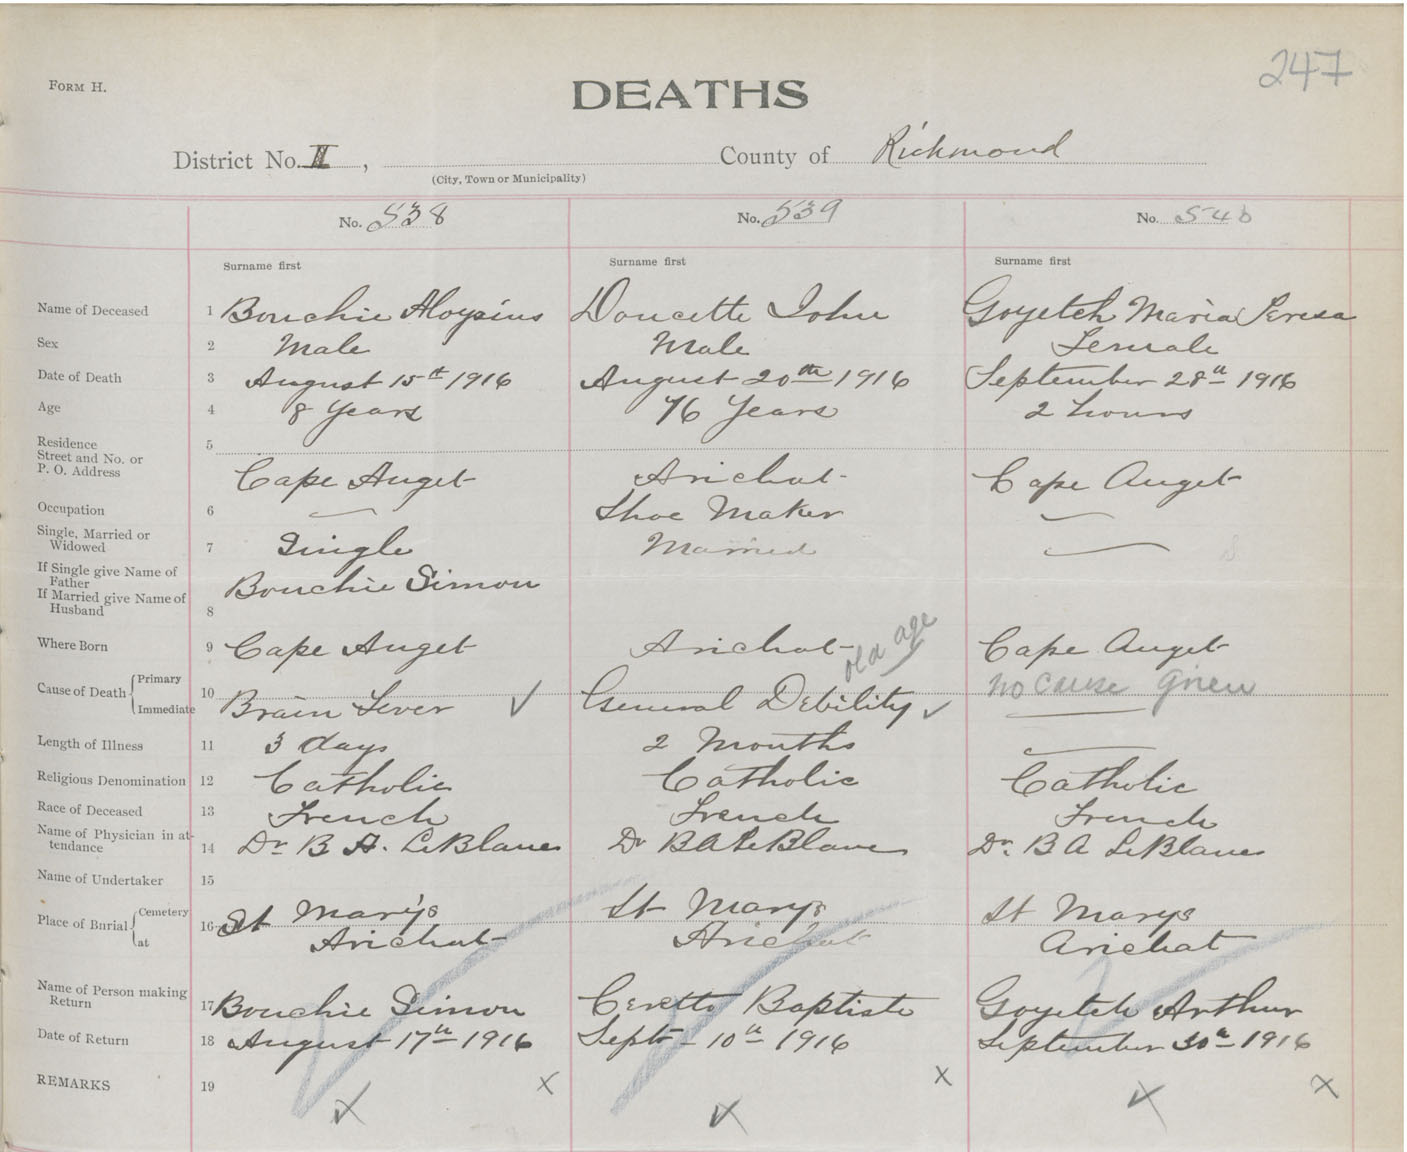 247
FORM H.
DEATHS
District No. II, County of Richmond
(City, Town or Municipality)
No. 538 No. 539 No. 540
Surname first Surname first Surname first
Name of Deceased 1 Bouchie Aloysius Doucette John Goyetch Maria Teresa
Sex 2 Male Male Female
Date of Death 3 August 15th 1916 August 20th 1916 September 28th 1916
Age 4 8 Years 76 Years 2 hours
Residence 5
Street and No. or
P. O. Address Cape Auget Arichat Cape Auget
Occupation 6 Shoe Maker
Single, Married or
Widowed 7 Single Married
If Single give Name of
Father Bouchie Simon
If Married give Name of
Husband 8
Where Born 9 Cape Auget Arichat Cape Auget
old age
Cause of Death { Primary 10 no cause given
Immediate Brain Fever General Debility
Length of Illness 11 3 days 2 Months
Religious Denomination 12 Catholic Catholic Catholic
Race of Deceased 13 French French French
Name of Physician in at-
tendance 14 Dr B A. LeBlanc Dr B A LeBlanc Dr. B A LeBlanc
Name of Undertaker 15
Place of Burial { Cemetery 16 St Mary's St Marys St Marys
at Arichat Arichat Arichat
Name of Person making
Return 17 Bouchie Simon Ceretto Baptiste Goyetch Arthur
Date of Return 18 August 17th 1916 Sept - 10th 1916 September 30th 1916
REMARKS 19